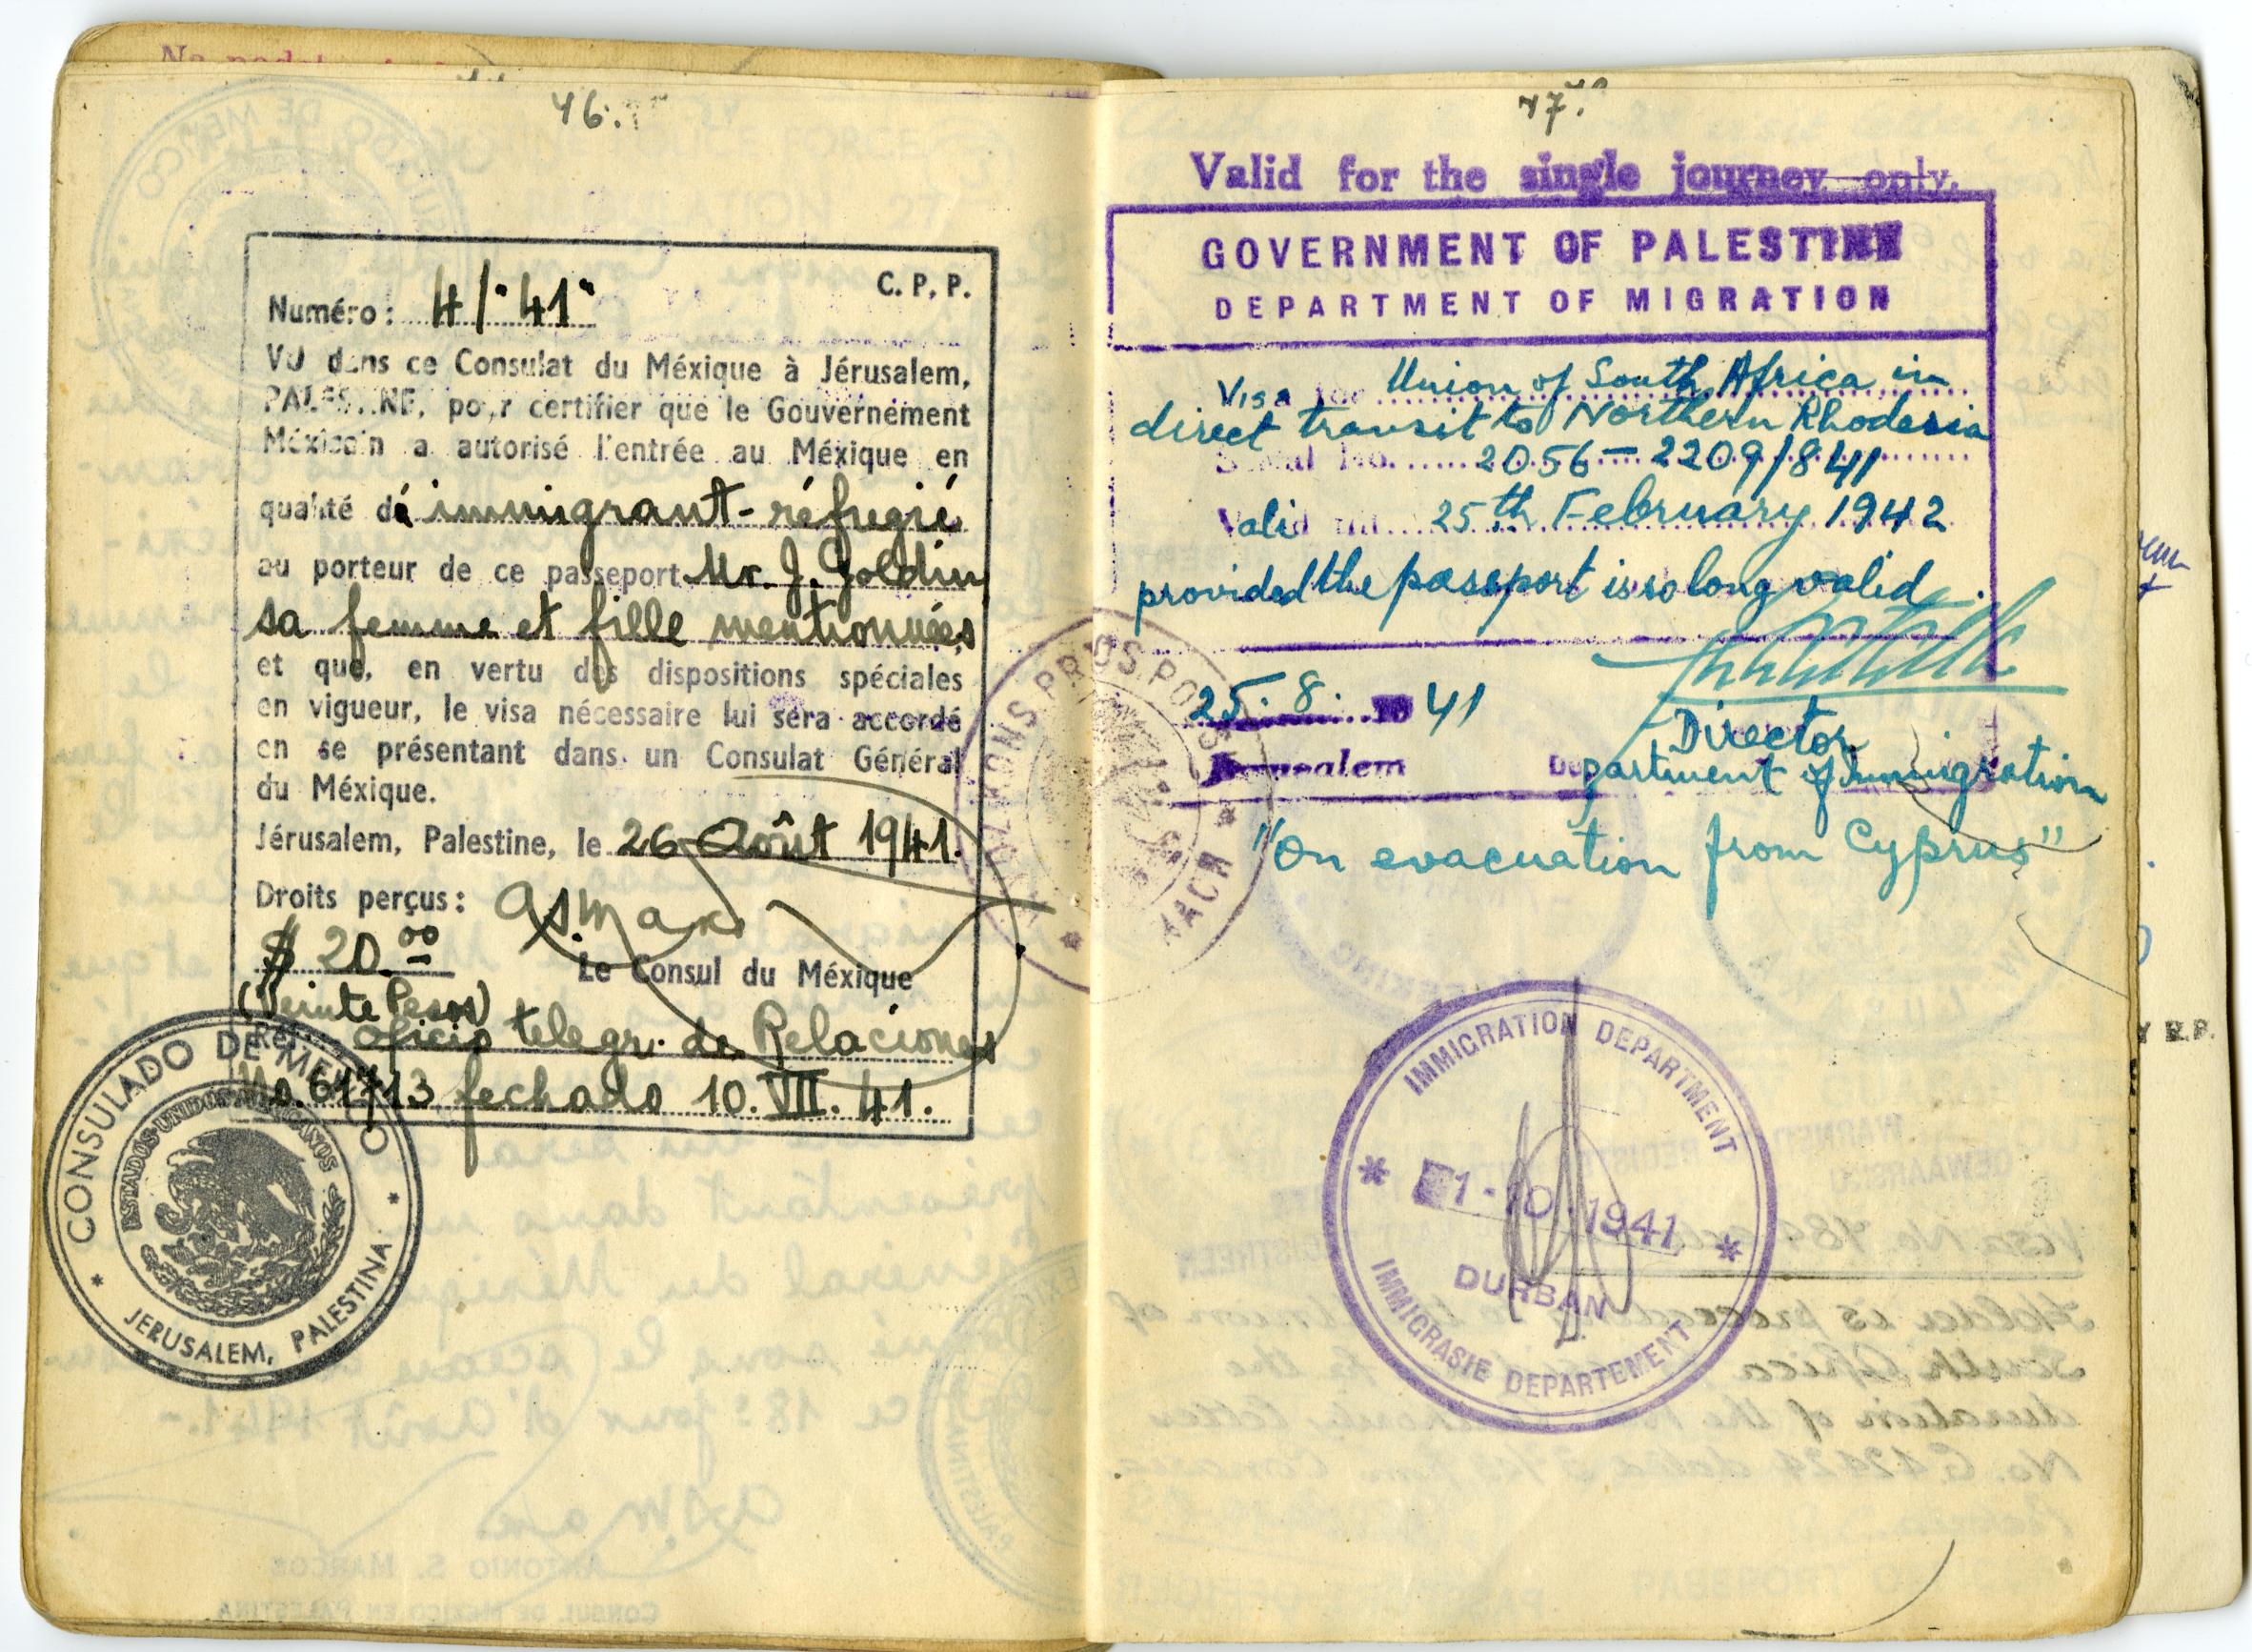 46.
C. P. P.
Numéro: 4/"41"
VU dans ce Consulat du Méxique à Jérusalem,
PALESTINE, pour certifier que le Gouvernement
Méxicain a autorisé l'entrée au Méxique en
qualité dé immigrant-réfugié
au porteur de ce passeport Mr. J. Goldin
sa femme et fille mentionnées
et que, en vertu des dispositions spéciales
en vigueur, le visa nécessaire lui sera accordé
en se présentant dans un Consulat Général
du Méxique.
Jérusalem, Palestine, le 26 Août 1941.
Droits perçus:
$ 20.00
Le Consul du Méxique
(Veinte Pesos)
Ref. oficio telegr. de Relaciones
No. 61713 fechado 10. VII. 41.
CONSULADO DE MEXICO
ESTADOS UNIDOS MEXICANOS
JERUSALEM, PALESTINA
47.
Valid for the single journey only.
GOVERNMENT OF PALESTINE
DEPARTMENT OF MIGRATION
Visa for Union of South Africa in
direct transit to Northern Rhodesia
Serial No. 2056-2209/841
Valid till 25th February 1942
provided the passport is so long valid.
25. 8. 1941
Jerusalem
Director
Department of Immigration
"On evacuation from Cyprus"
IMMIGRATION DEPARTMENT
1-10.1941
DURBAN
IMMIGRASIE DEPARTEMENT